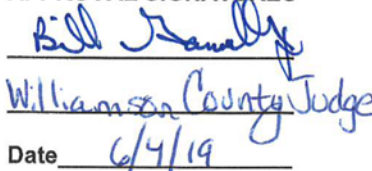 Bill Gravell Jr
Williamson County Judge
Date 6/4/19